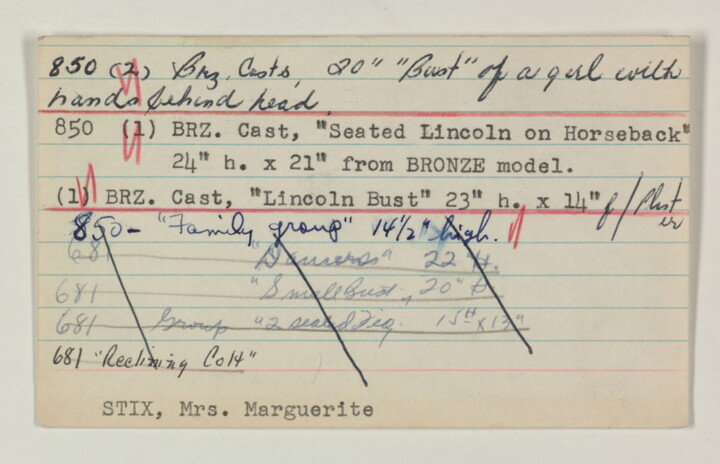 850 (2) Brz. Casts, 20" "Bust" of a girl with
hands behind head.
850 (1) BRZ. Cast, "Seated Lincoln on Horseback"
24" h. x 21" from BRONZE model.
(1) BRZ. Cast, "Lincoln Bust" 23" h. x 14" f/Plast
er
850 - "Family group" 14½" high.
681 "Dancers" 22" H.
681 "Small Bust" 20" H
681 Group "2 seated Fig. 15" H x 12"
681 "Reclining Colt"
STIX, Mrs. Marguerite